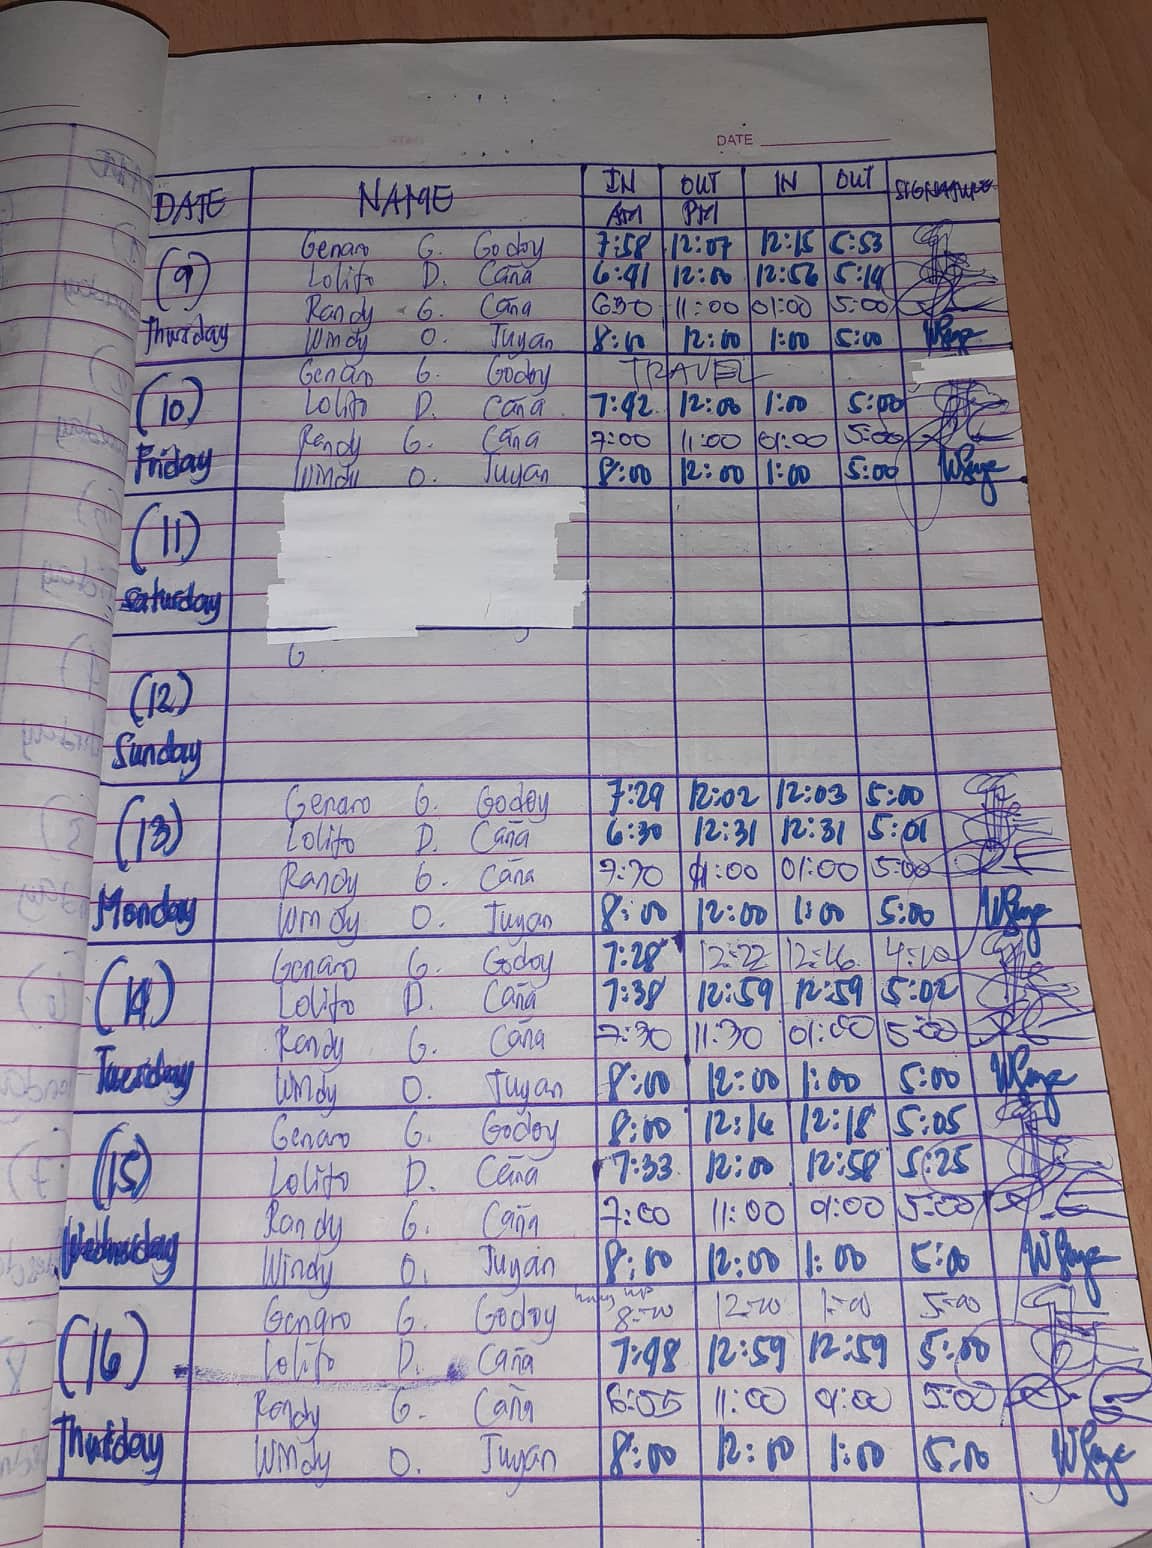 DATE
DATE NAME IN OUT IN OUT SIGNATURE
AM PM
(9) Thursday
Genaro G. Godoy 7:58 12:07 12:15 5:53
Lolito D. Caña 6:41 12:00 12:56 5:14
Randy G. Caña 6:30 11:00 01:00 5:00
Windy O. Tuyan 8:00 12:00 1:00 5:00
(10) Friday
Genaro G. Godoy TRAVEL
Lolito D. Caña 7:42 12:00 1:00 5:00
Randy G. Caña 7:00 11:00 01:00 5:00
Windy O. Tuyan 8:00 12:00 1:00 5:00
(11)
Saturday
G
(12)
Sunday
(13) Monday
Genaro G. Godoy 7:29 12:02 12:03 5:00
Lolito D. Caña 6:30 12:31 12:31 5:01
Randy G. Caña 7:30 11:00 01:00 5:00
Windy O. Tuyan 8:00 12:00 1:00 5:00
(14) Tuesday
Genaro G. Godoy 7:28 12:22 12:46 4:10
Lolito D. Caña 7:38 12:59 12:59 5:02
Randy G. Caña 7:30 11:30 01:00 5:00
Windy O. Tuyan 8:00 12:00 1:00 5:00
(15) Wednesday
Genaro G. Godoy 8:00 12:16 12:18 5:05
Lolito D. Caña 7:33 12:00 12:58 5:25
Randy G. Caña 7:00 11:00 01:00 5:00
Windy O. Tuyan 8:00 12:00 1:00 5:00
(16) Thursday
Genaro G. Godoy 8:00 12:00 1:00 5:00
Lolito D. Caña 7:48 12:59 12:59 5:00
Randy G. Caña 6:55 11:00 01:00 5:00
Windy O. Tuyan 8:00 12:00 1:00 5:00